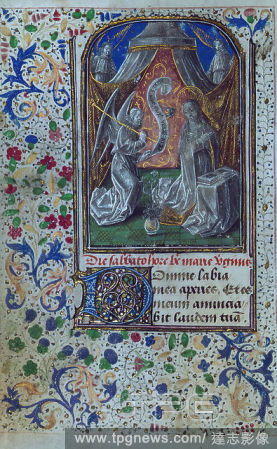 Die sabbato hore be marie virginis
Domine labia
mea aperies. Et os
meum annuncia
bit laudem tuā
www.tpgnews.com/達志影像